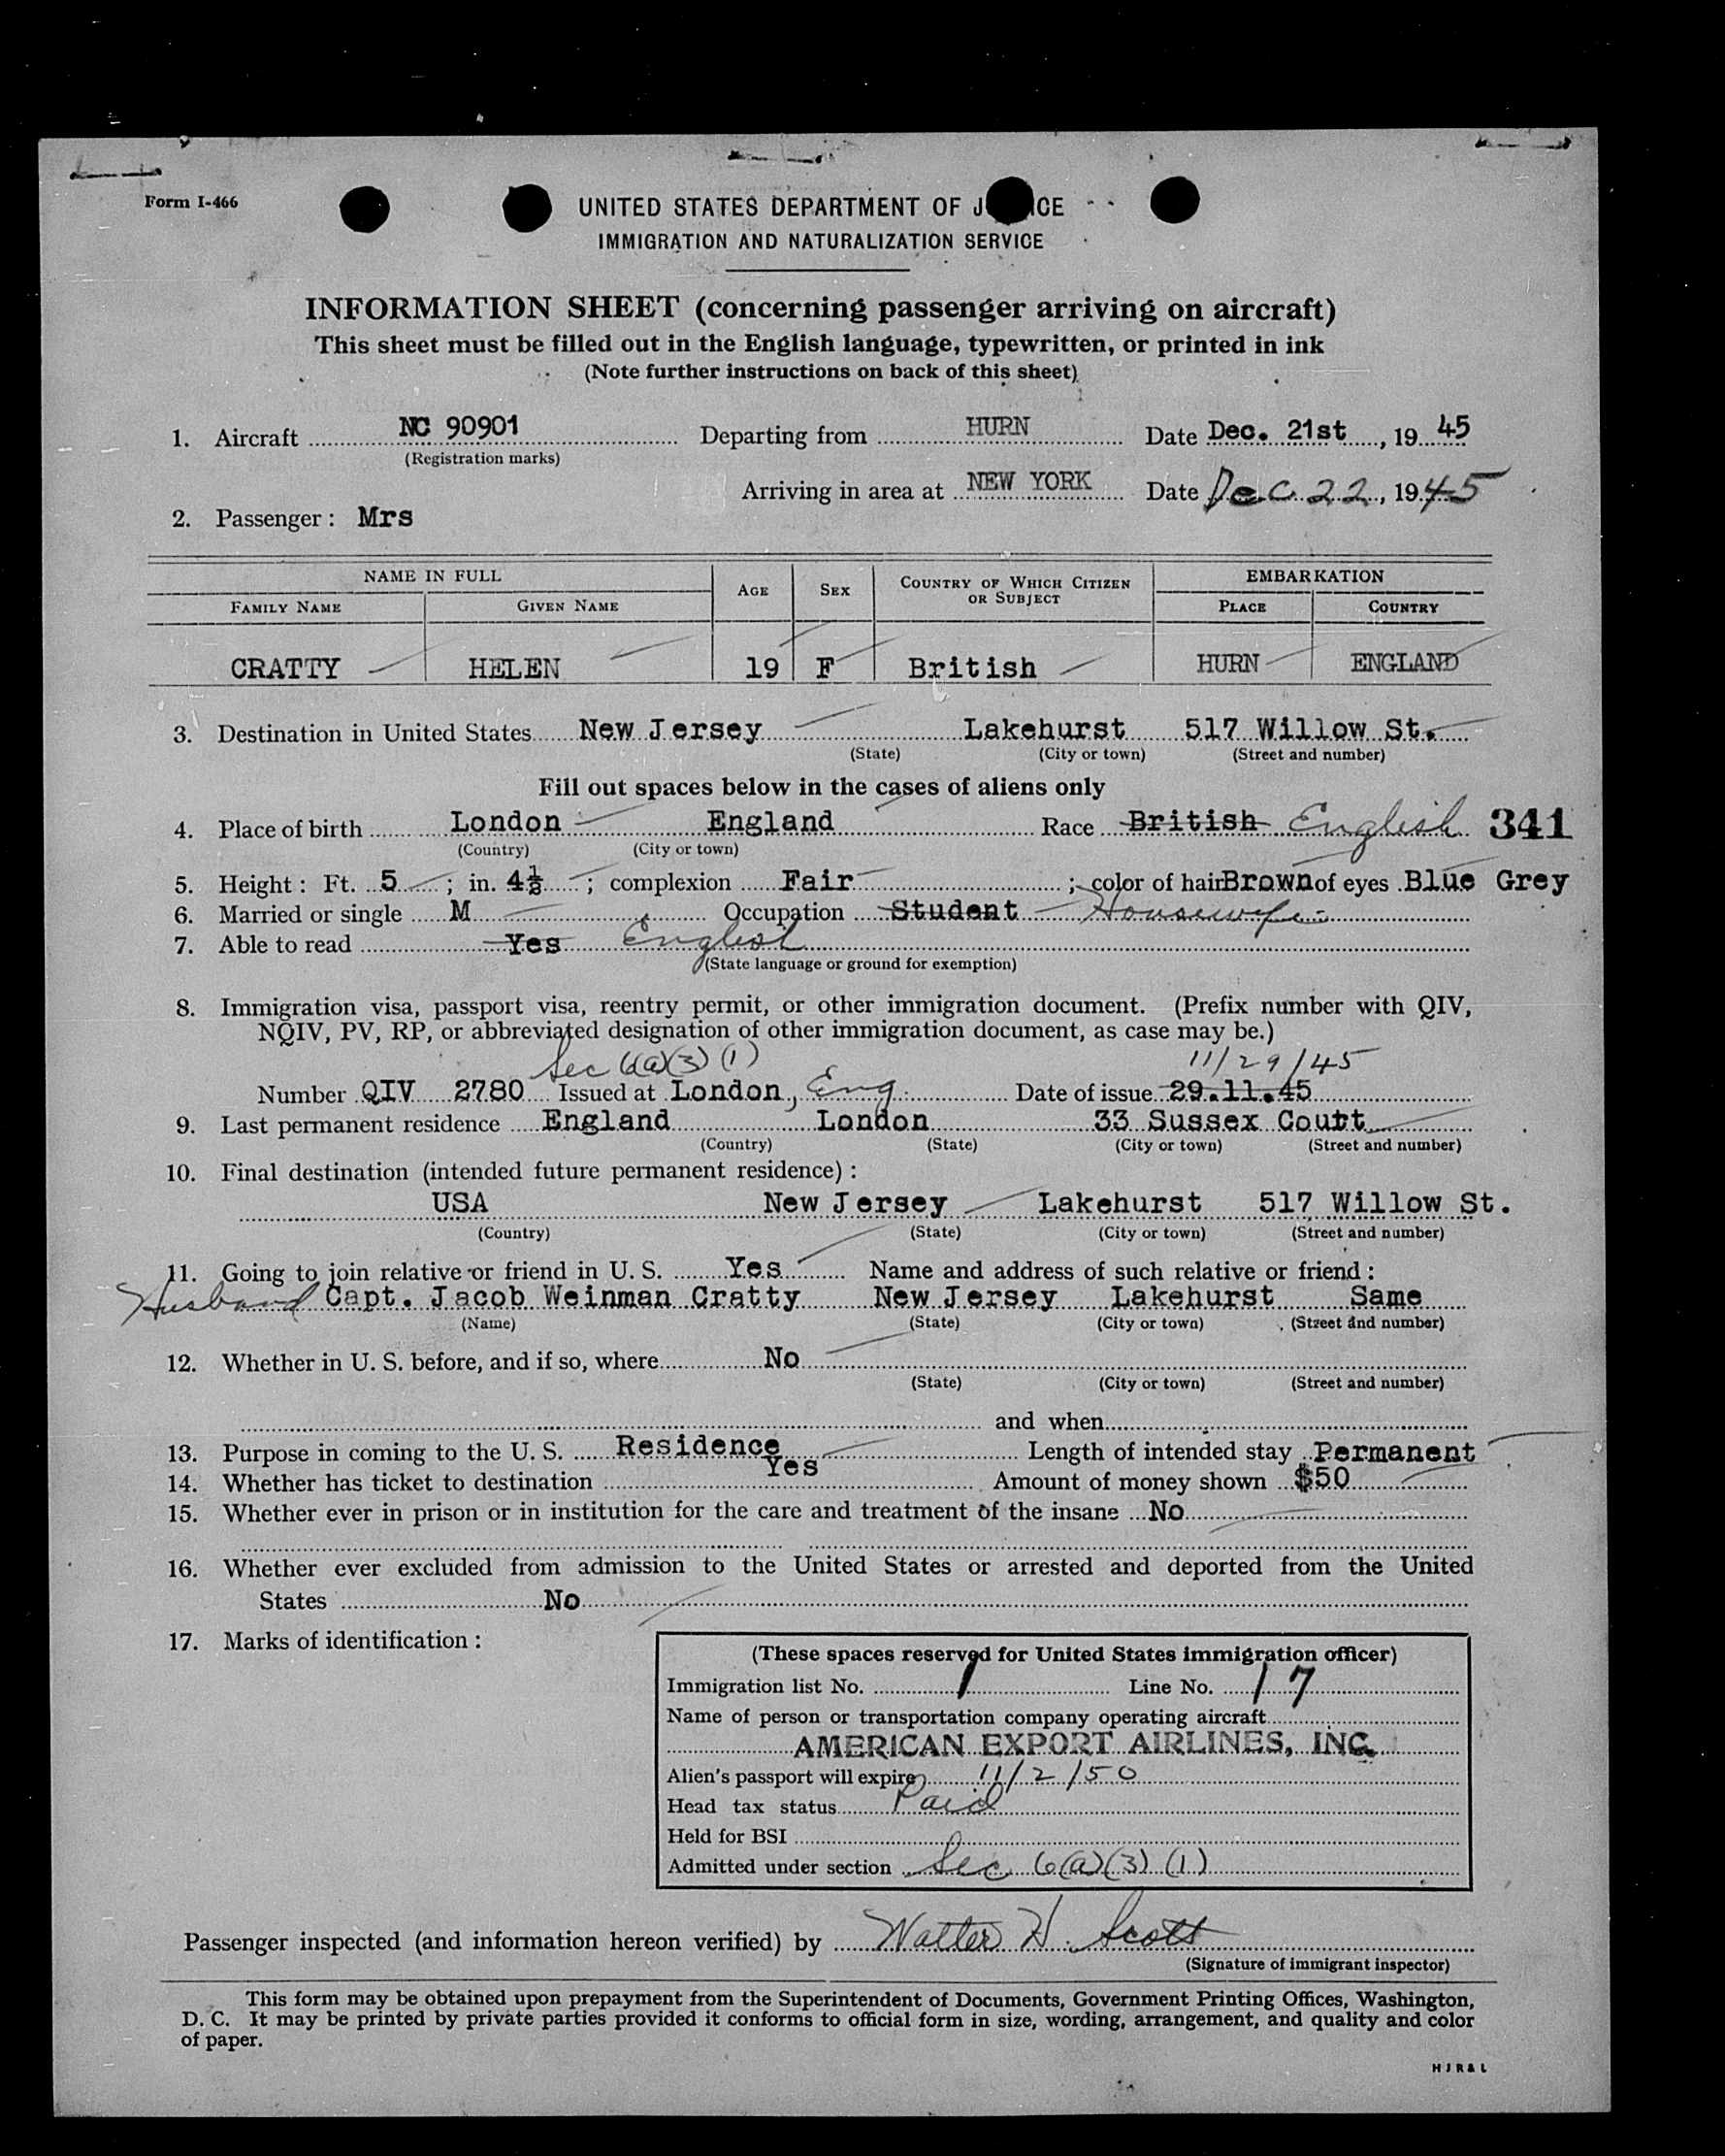 Form I-466
UNITED STATES DEPARTMENT OF J ICE
IMMIGRATION AND NATURALIZATION SERVICE
INFORMATION SHEET (concerning passenger arriving on aircraft)
This sheet must be filled out in the English language, typewritten, or printed in ink
(Note further instructions on back of this sheet)
1. Aircraft NC 90901 Departing from HURN Date Dec. 21st, 19 45
(Registration marks)
Arriving in area at NEW YORK Date Dec 22, 1945
2. Passenger: Mrs
NAME IN FULL AGE SEX COUNTRY OF WHICH CITIZEN OR SUBJECT EMBARKATION
FAMILY NAME GIVEN NAME PLACE COUNTRY
CRATTY HELEN 19 F British HURN ENGLAND
3. Destination in United States New Jersey Lakehurst 517 Willow St.
(State) (City or town) (Street and number)
Fill out spaces below in the cases of aliens only
4. Place of birth London England Race British English 341
(Country) (City or town)
5. Height: Ft. 5; in. 4⅛; complexion Fair; color of hair Brown of eyes Blue Grey
6. Married or single M Occupation Student Housewife
7. Able to read Yes English
(State language or ground for exemption)
8. Immigration visa, passport visa, reentry permit, or other immigration document. (Prefix number with QIV,
NQIV, PV, RP, or abbreviated designation of other immigration document, as case may be.)
Sec 6(a)(3)(1) 11/29/45
Number QIV 2780 Issued at London, Eng. Date of issue 29.11.45
9. Last permanent residence England London 33 Sussex Coutt
(Country) (State) (City or town) (Street and number)
10. Final destination (intended future permanent residence):
USA New Jersey Lakehurst 517 Willow St.
(Country) (State) (City or town) (Street and number)
11. Going to join relative or friend in U. S. Yes Name and address of such relative or friend:
Husband Capt. Jacob Weinman Cratty New Jersey Lakehurst Same
(Name) (State) (City or town) (Street and number)
12. Whether in U. S. before, and if so, where No
(State) (City or town) (Street and number)
and when
13. Purpose in coming to the U. S. Residence Length of intended stay Permanent
14. Whether has ticket to destination Yes Amount of money shown $50
15. Whether ever in prison or in institution for the care and treatment of the insane No
16. Whether ever excluded from admission to the United States or arrested and deported from the United
States No
17. Marks of identification:
(These spaces reserved for United States immigration officer)
Immigration list No. 1 Line No. 17
Name of person or transportation company operating aircraft
AMERICAN EXPORT AIRLINES, INC.
Alien's passport will expire 11/2/50
Head tax status Paid
Held for BSI
Admitted under section Sec. 6(a)(3)(1)
Passenger inspected (and information hereon verified) by Walter H. Scott
(Signature of immigrant inspector)
This form may be obtained upon prepayment from the Superintendent of Documents, Government Printing Offices, Washington,
D. C. It may be printed by private parties provided it conforms to official form in size, wording, arrangement, and quality and color
of paper.
H J R & L